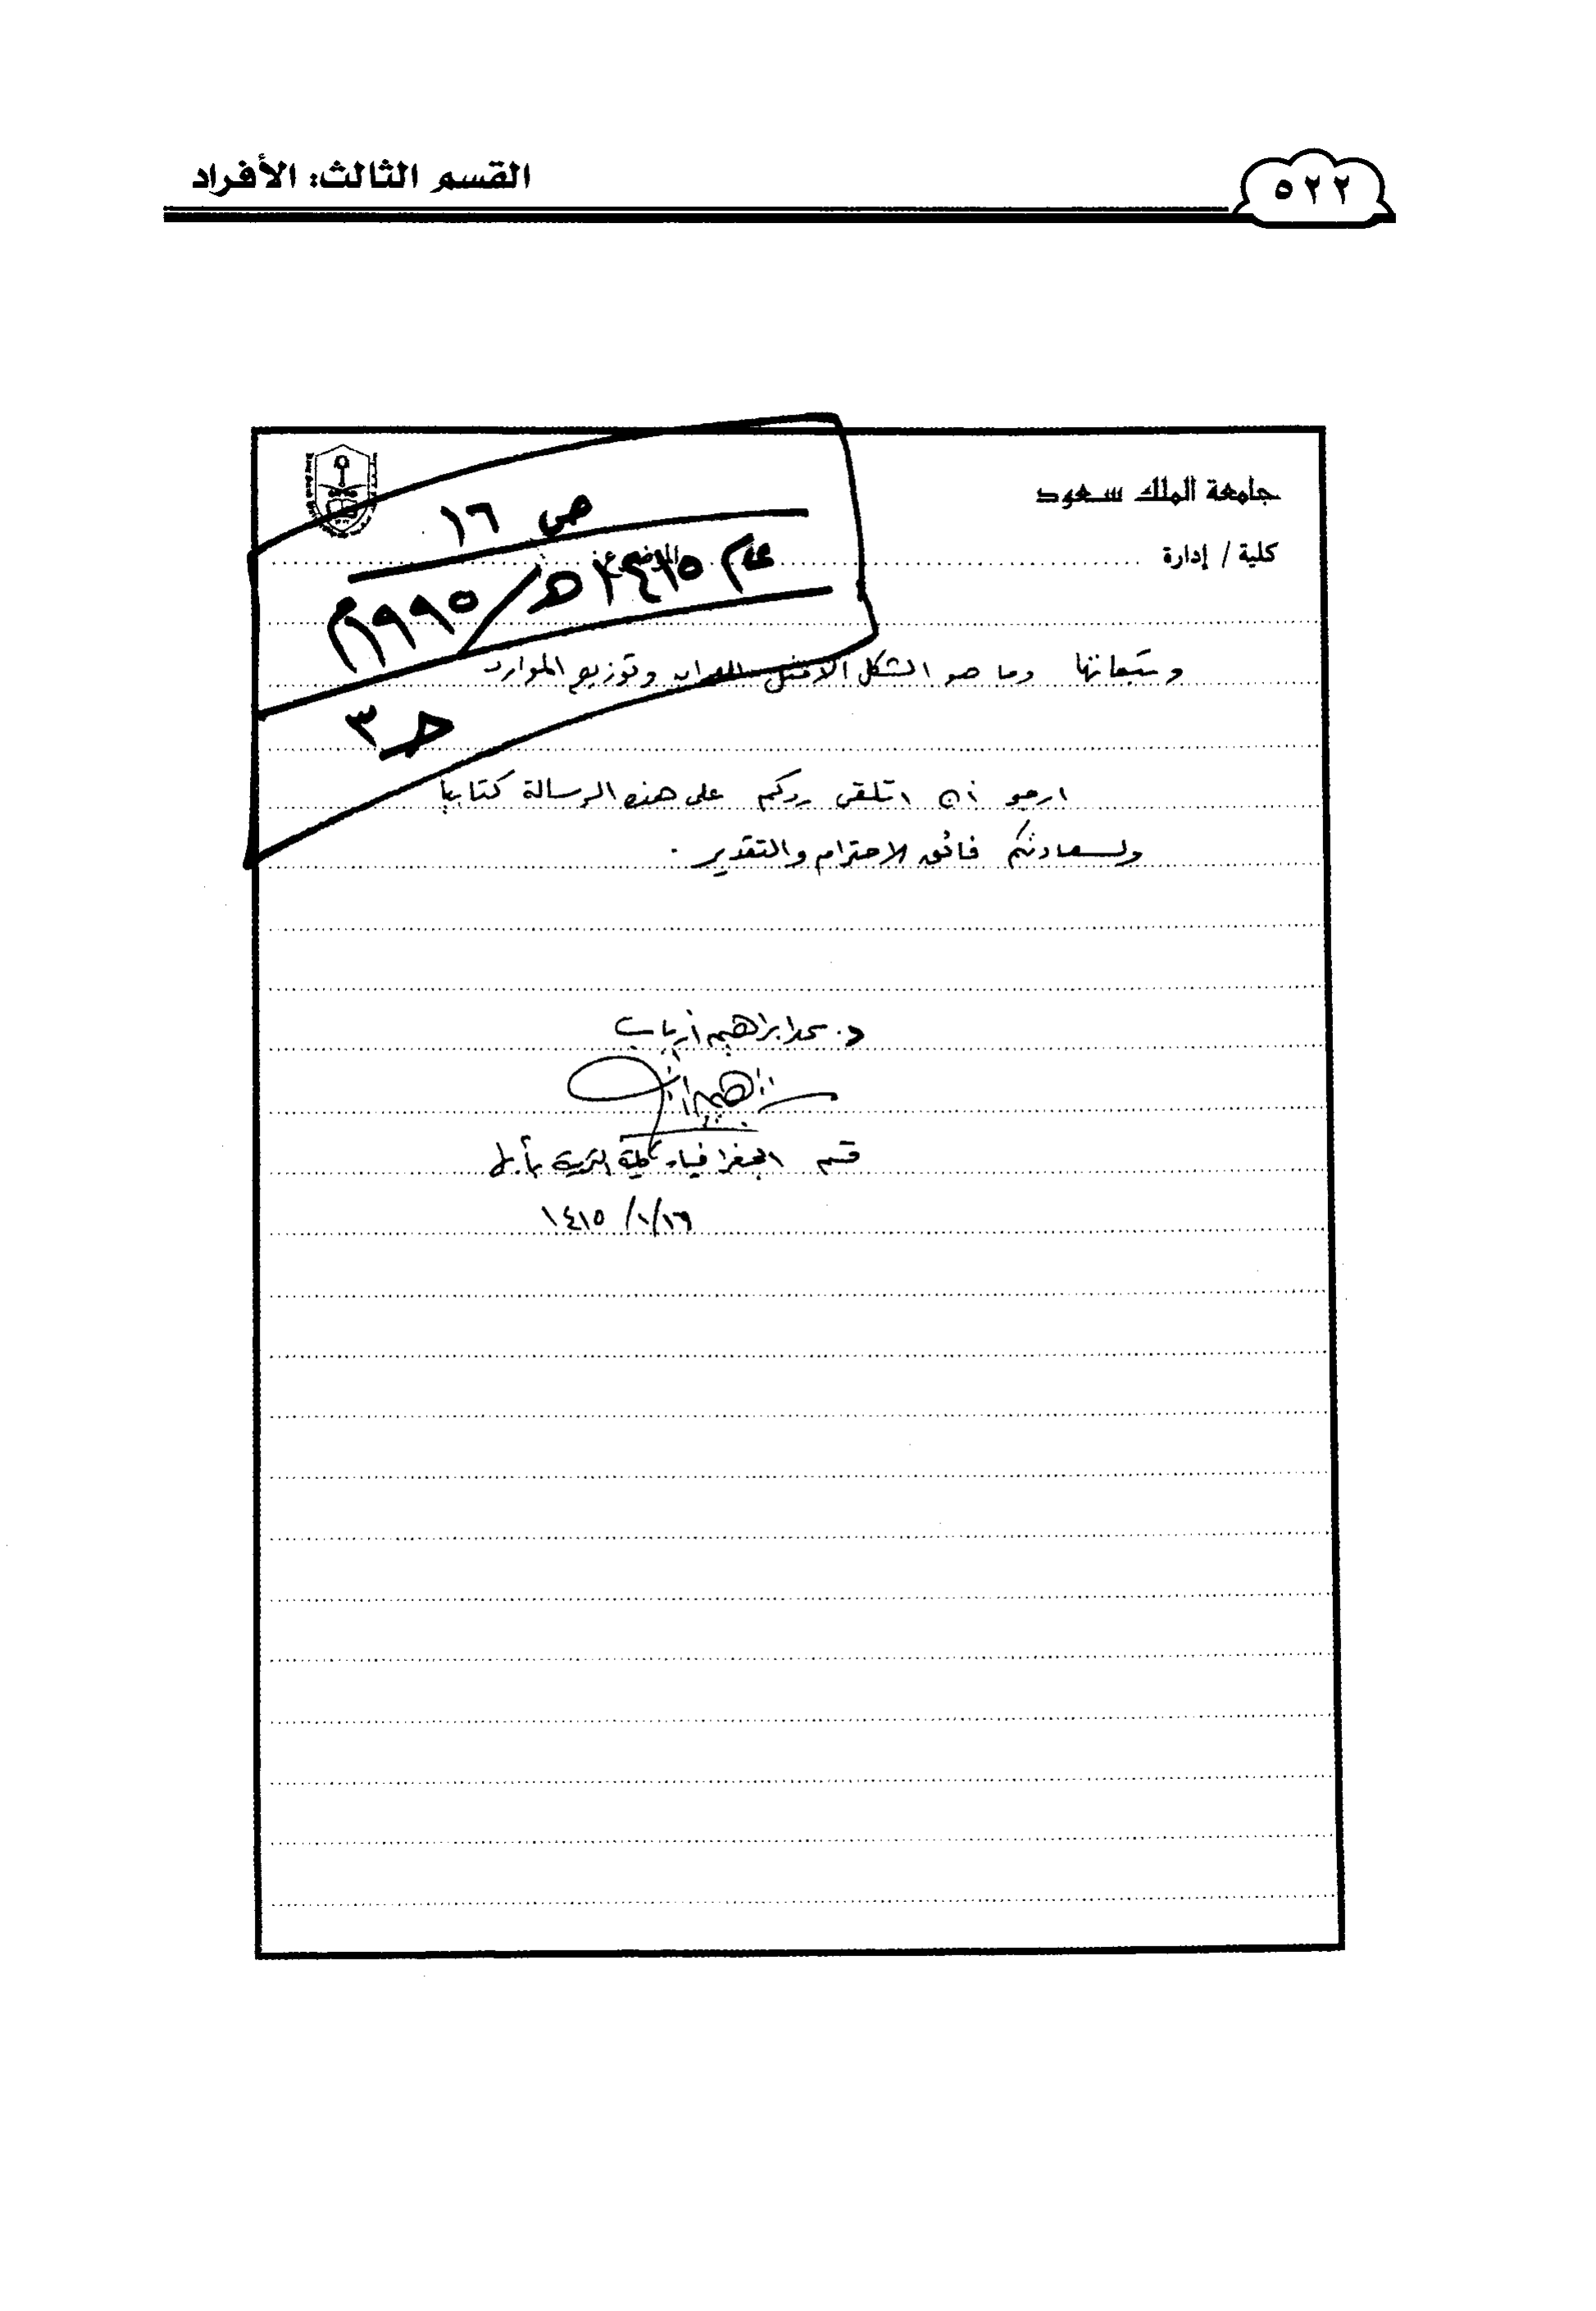 ٥٢٢
القسم الثالث: الأفراد
جامعة الملك سعود
كلية / إدارة
ص ١٦
عام ١٤١٥هـ/١٩٩٥م
حـ ٣
وتبعاتها وما هو الشكل الأمثل للعمران وتوزيع الموارد
ارجو أن اتلقى ردكم على هذه الرسالة كتابياً
ولسعادتكم فائق الاحترام والتقدير .
د. محمد ابراهيم أرباب
قسم الجغرافيا، كلية التربية بأبها
١٤١٥/١/١٦